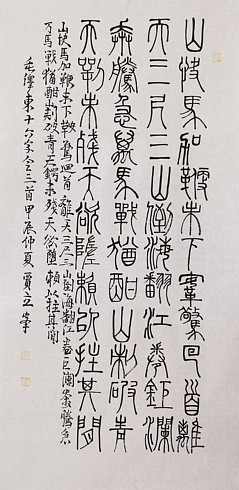 山快馬加鞭未下鞌驚回首離
天三尺三山倒海翻江卷鉅瀾
奔騰急萬馬戰猶酣山刺破青
天鍔未殘天欲墮賴以拄其間
山快馬加鞭未下鞍驚回首離天三尺三山倒海翻江卷巨瀾奔騰急
万馬戰猶酣山刺破青天鍔未殘天欲墮賴以拄其間
毛澤東十六字令三首甲辰仲夏賈立